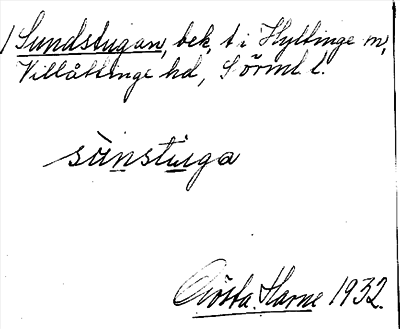 Sundstugan, bek. t. i Hyltinge sn,
Villåttinge hd, Sörml l.
sùnstuga
Gösta Harne 1932.